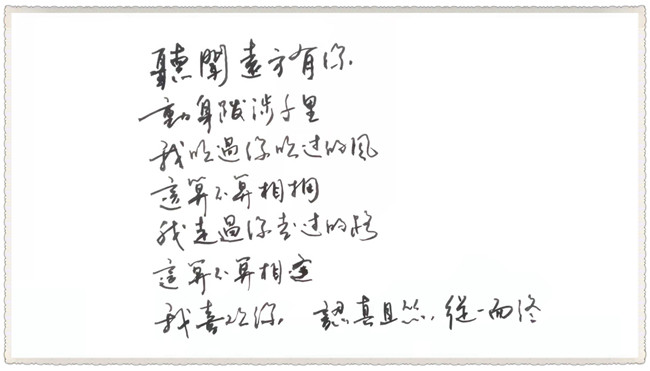 聽聞遠方有你，
動身跋涉千里
我吹過你吹过的風
這算不算相拥
我走過你走过的路
這算不算相逢
我喜欢你， 認真且怂，從一而终